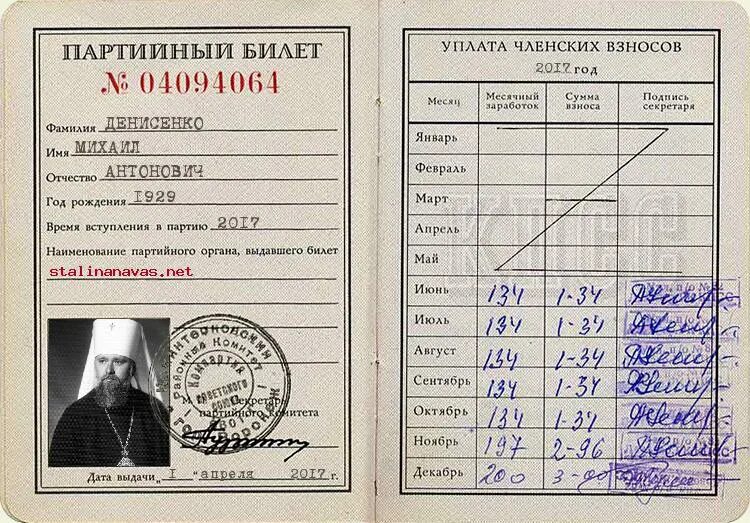 ПАРТИЙНЫЙ БИЛЕТ
№ 04094064
Фамилия ДЕНИСЕНКО
Имя МИХАИЛ
Отчество АНТОНОВИЧ
Год рождения 1929
Время вступления в партию 2017
Наименование партийного органа, выдавшего билет
stalinanavas.net
Районный Комитет
Компартия
Советского
Союза
М. П. Секретарь
партийного комитета
Дата выдачи „ 1 “ апреля 2017 г.
УПЛАТА ЧЛЕНСКИХ ВЗНОСОВ
2017 год
Месяц Месячный заработок Сумма взноса Подпись секретаря
Январь
Февраль
Март
КПСС
Апрель
Май
Июнь 134 1-34
Июль 134 1-34
Август 134 1-34
Сентябрь 134 1-34
Октябрь 134 1-34
Ноябрь 197 2-96
Декабрь 200